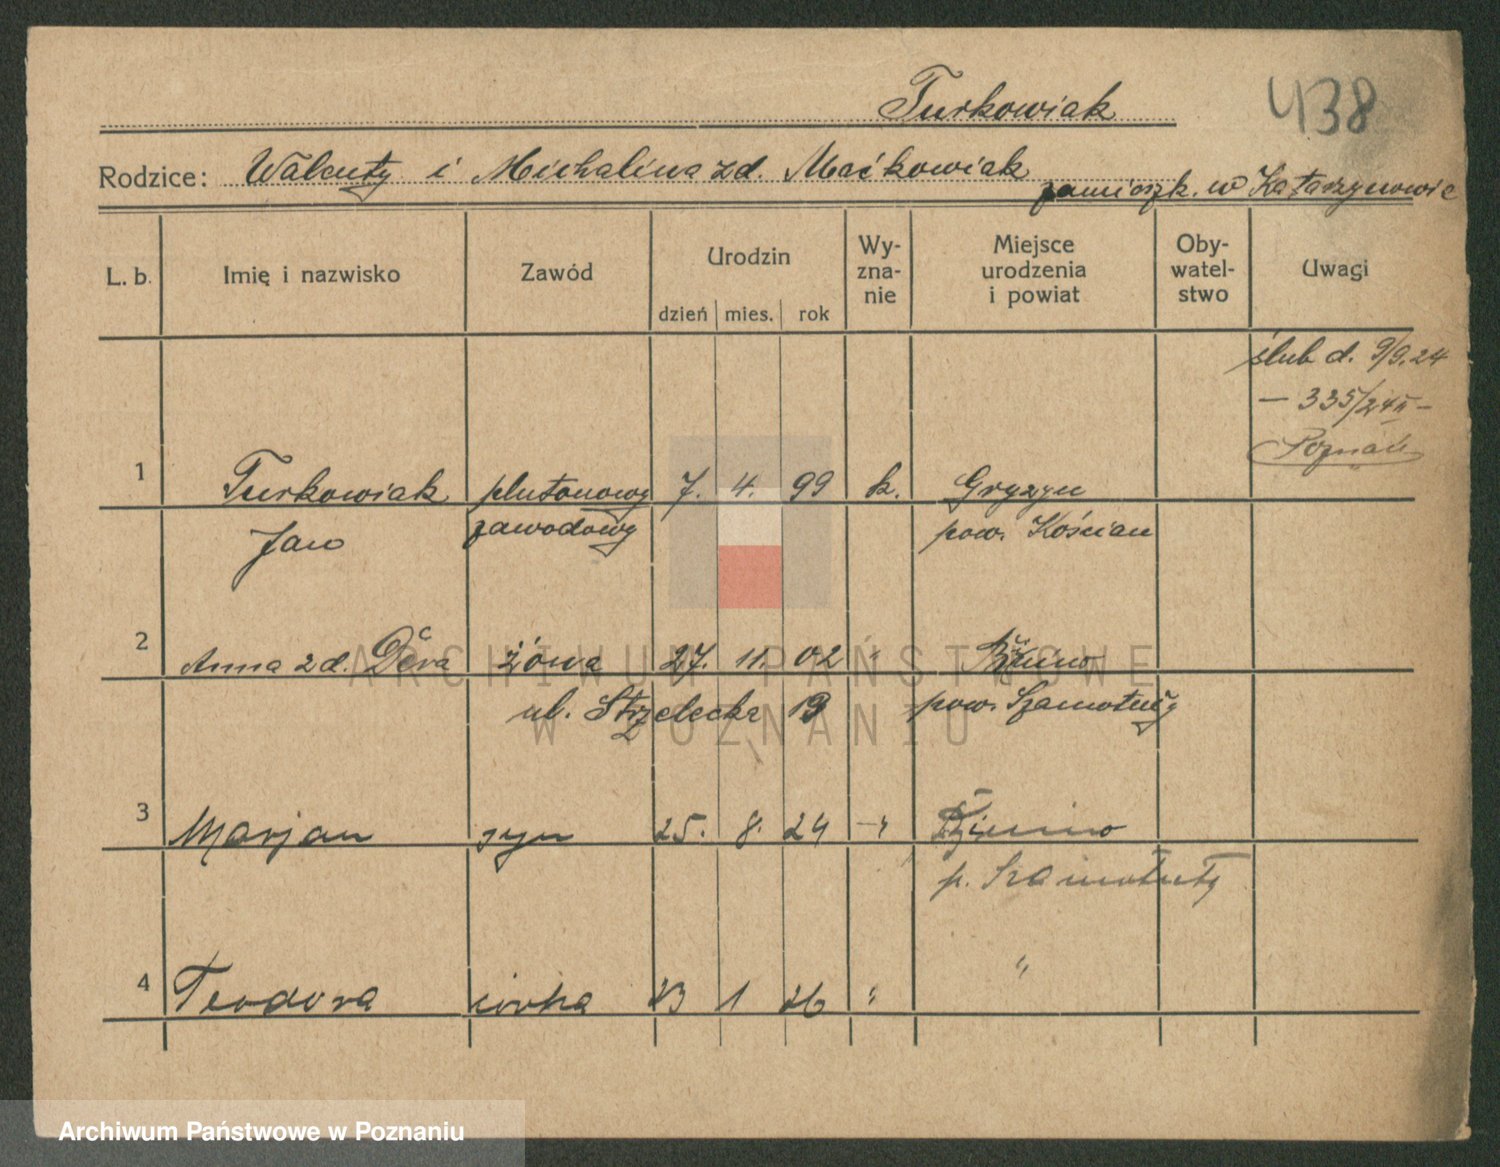 Turkowiak
438
Rodzice: Walenty i Michalina zd. Maćkowiak zamieszk. w Katarzynowie
L. b. Imię i nazwisko Zawód Urodzin dzień mies. rok Wy-zna-nie Miejsce urodzenia i powiat Oby-watel-stwo Uwagi
ślub d. 9/9.24
— 335/24 II —
Poznań
1 Turkowiak plutonowy 7. 4. 99 k. Gryżyn
Jan zawodowy pow. Kościan
2 Anna zd. Dera żona 27. 11. 02 "
ul. Strzelecka 19 pow. Szamotuły
3 Marjan syn 25. 8. 24 -"
p. Szamotuły
4 Teodora córka 23 1 26 " "
ARCHIWUM PAŃSTWOWE
W POZNANIU
Archiwum Państwowe w Poznaniu